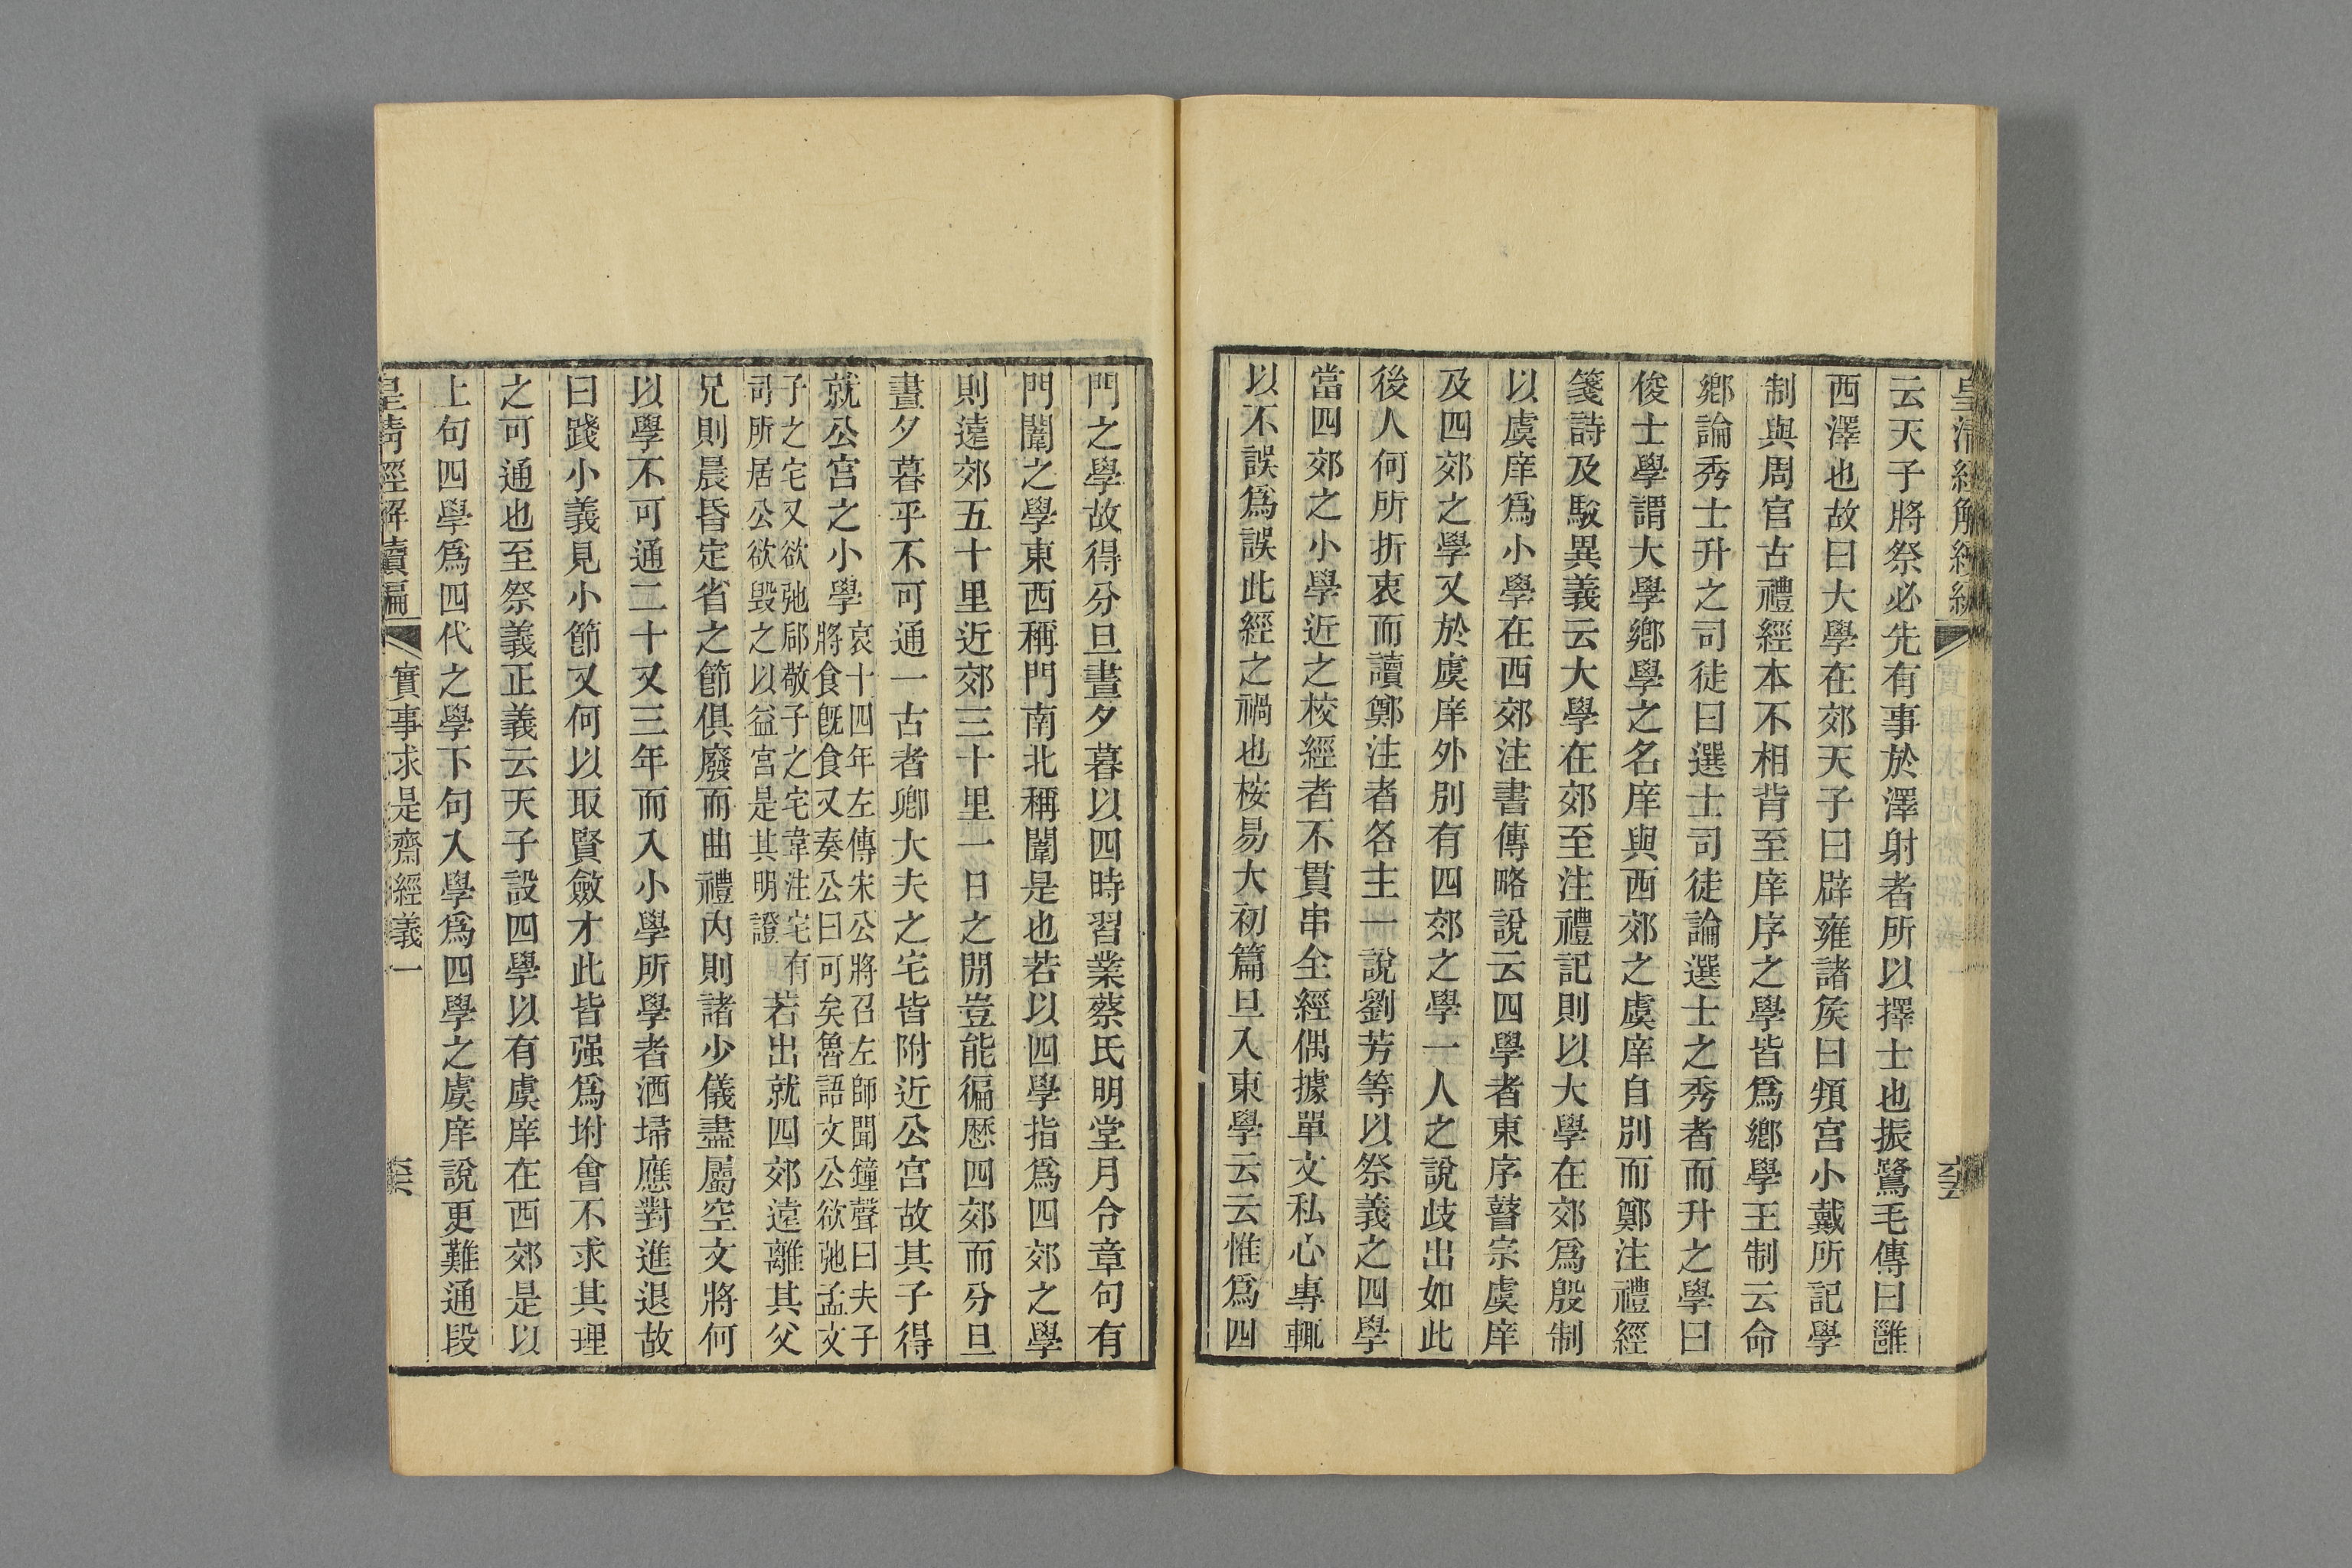 云天子將祭必先有事於澤射者所以擇士也振鷺毛傳曰雝
西澤也故曰大學在郊天子曰辟雍諸矦曰頖宮小戴所記學
制與周官古禮經本不相背至庠序之學皆爲鄕學王制云命
鄕論秀士升之司徒曰選士司徒論選士之秀者而升之學曰
俊士學謂大學鄕學之名庠與西郊之虞庠自別而鄭注禮經
箋詩及駮異義云大學在郊至注禮記則以大學在郊爲殷制
以虞庠爲小學在西郊注書傳略說云四學者東序瞽宗虞庠
及四郊之學又於虞庠外別有四郊之學一人之說歧出如此
後人何所折衷而讀鄭注者各主一說劉芳等以祭義之四學
當四郊之小學近之校經者不貫串全經偶據單文私心專輒
以不誤爲誤此經之禍也桉易大初篇旦入東學云云惟爲四
門之學故得分旦晝夕暮以四時習業蔡氏明堂月令章句有
門闈之學東西稱門南北稱闈是也若以四學指爲四郊之學
則遠郊五十里近郊三十里一日之閒豈能徧歷四郊而分旦
晝夕暮乎不可通一古者卿大夫之宅皆附近公宮故其子得
就公宮之小學
哀十四年左傳宋公將召左師聞鐘聲曰夫子
將食旣食又奏公曰可矣魯語文公欲弛孟文
子之宅又欲弛郈敬子之宅韋注宅有
司所居公欲毀之以益宮是其明證
若出就四郊遠離其父
兄則晨昏定省之節俱廢而曲禮內則諸少儀盡屬空文將何
以學不可通二十又三年而入小學所學者洒埽應對進退故
曰踐小義見小節又何以取賢斂才此皆强爲坿會不求其理
之可通也至祭義正義云天子設四學以有虞庠在西郊是以
上句四學爲四代之學下句入學爲四學之虞庠說更難通段
皇清經解續編
實事求是齋經義一